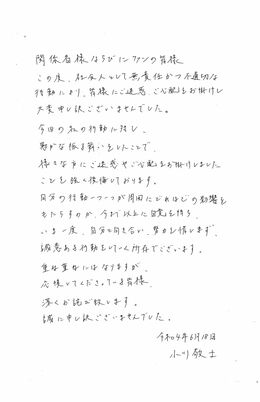 関係者様ならびにファンの皆様
この度、社会人として無責任かつ不適切な
行動により、皆様にご迷惑、ご心配をお掛けし
大変申し訳ございませんでした。
今回の私の行動に対し、
愚かな振る舞いをしたことで、
様々な方にご迷惑やご心配をお掛けしました
ことを強く後悔しております。
自分の行動一つ一つが周囲にどれほどの影響を
もたらすのか、今まで以上に自覚を持ち、
いま一度、自分と向き合い、努力を惜しまず、
誠意ある行動をしていく所存でございます。
重ね重ねにはなりますが、
応援してくださっている皆様、
深くお詫び致します。
誠に申し訳ございませんでした。
令和4年6月18日
小川敬士